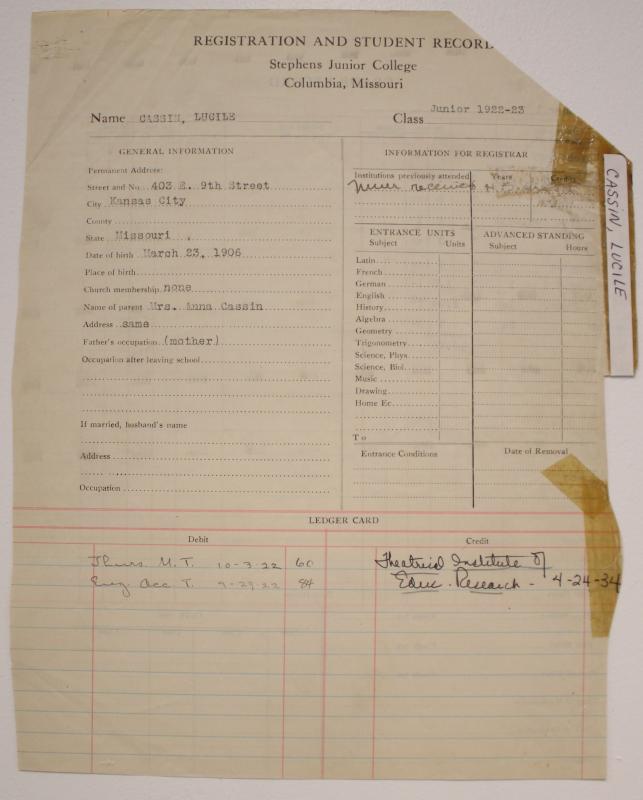 REGISTRATION AND STUDENT RECORD
Stephens Junior College
Columbia, Missouri
Name CASSIN, LUCILE
Class Junior 1922-23
GENERAL INFORMATION
Permanent Address:
Street and No. 403 E. 9th Street
City Kansas City
County
State Missouri .
Date of birth March 23, 1906
Place of birth
Church membership none
Name of parent Mrs. Anna Cassin
Address same
Father's occupation (mother)
Occupation after leaving school
If married, husband's name
Address
Occupation
INFORMATION FOR REGISTRAR
Institutions previously attended Years Credits
never received H.
ENTRANCE UNITS ADVANCED STANDING
Subject Units Subject Hours
Latin
French
German
English
History
Algebra
Geometry
Trigonometry
Science, Phys.
Science, Biol.
Music
Drawing
Home Ec.
To
Entrance Conditions Date of Removal
CASSIN, LUCILE
LEDGER CARD
Debit Credit
Thurs. M. T. 10-3-22 60 Theatrical Institute of
Eng. Acc T. 9-29-22 84 Educ. Research - 4-24-34